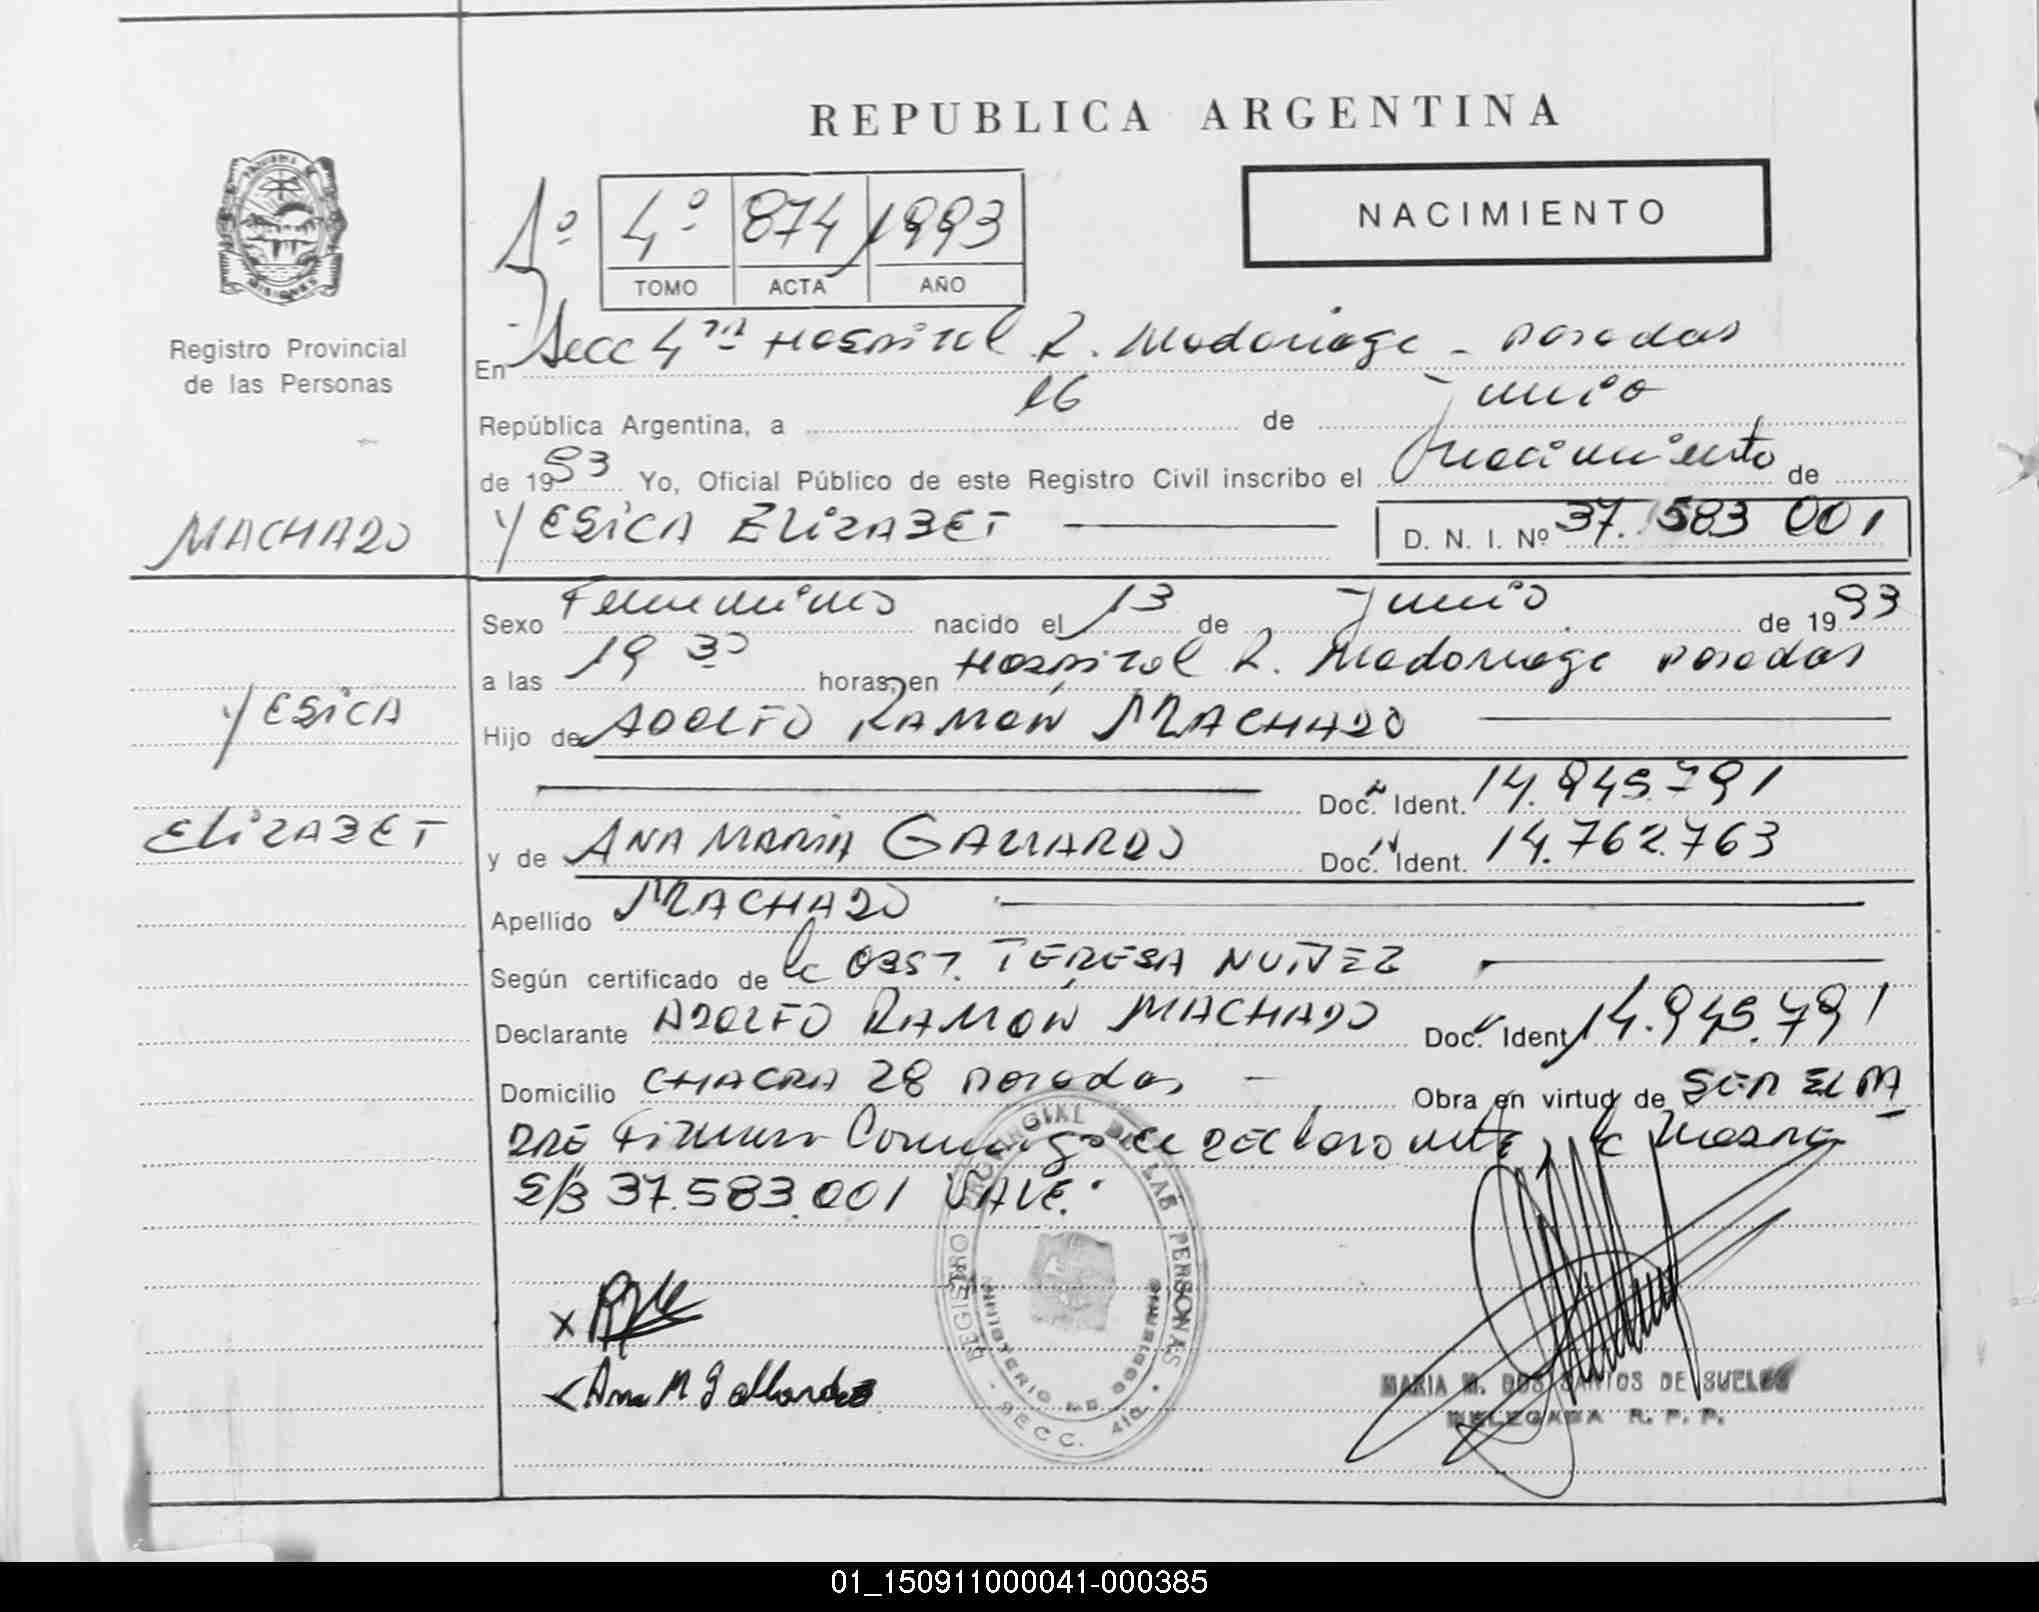 REPUBLICA ARGENTINA
NACIMIENTO
1º 4º 874 1993
TOMO ACTA AÑO
Registro Provincial
de las Personas
En Secc 4ta Hospital R. Madariaga - Posadas
República Argentina, a 16 de Junio
de 1993 Yo, Oficial Público de este Registro Civil inscribo el nacimiento de
MACHADO
YESICA ELIZABET
D. N. I. Nº 37.583 001
Sexo Femenino nacido el 13 de Junio de 1993
a las 19 30 horas, en Hospital R. Madariaga Posadas
YESICA
Hijo de ADOLFO RAMON MACHADO
Doc. Ident. 14.945.791
ELIZABET
y de ANA MARIA GALLARDO Doc. Ident. 14.762.763
Apellido MACHADO
Según certificado de la OBST. TERESA NUÑEZ
Declarante ADOLFO RAMON MACHADO Doc. Ident 14.945.791
Domicilio CHACRA 28 Posadas - Obra en virtud de SER EL PA
DRE Firman Conmigo el DECLARANTE, la MADRE
S/B 37.583.001 VALE.
REGISTRO PROVINCIAL DE LAS PERSONAS
MINISTERIO DE GOBIERNO
SECC. 4ta.
Ana M Gallardo
MARIA M. DOS SANTOS DE SUELOS
DELEGADA R. P. P.
01_150911000041-000385